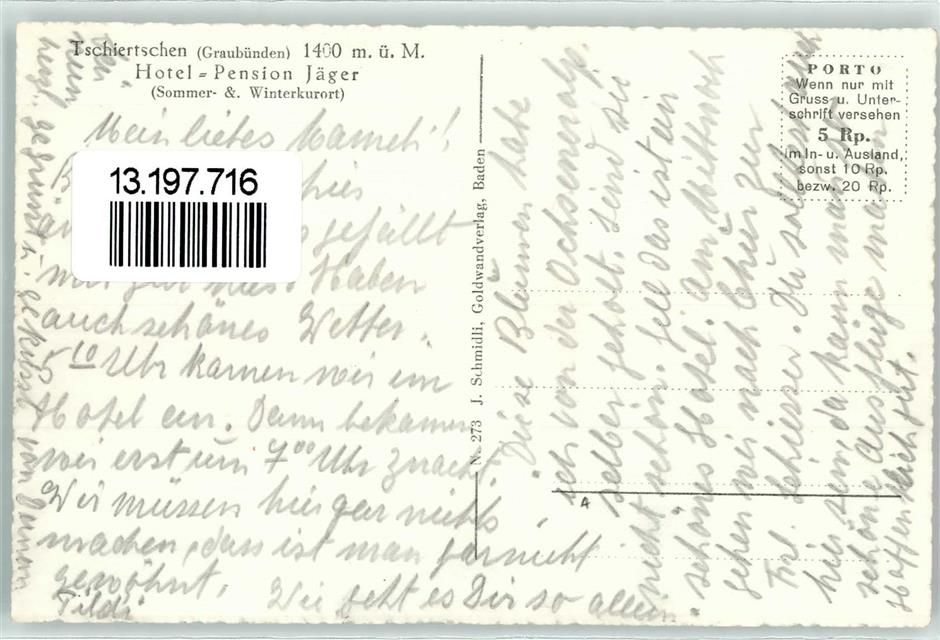 Tschiertschen (Graubünden) 1400 m. ü. M.
Hotel = Pension Jäger
(Sommer- &. Winterkurort)
Mein liebes Mameli!
B hies
gefällt
mir Haben
auch schönes Wetter.
5 10 Uhr kamen wir im
Hotel an. Dann bekamen
wir erst um 7 00 Uhr Znacht.
Wir müssen hier gar nichts
machen, dass ist man gar nicht
gewöhnt. Wie geht es Dir so allein.
13.197.716
No. 273 J. Schmidli, Goldwandverlag, Baden
PORTO
Wenn nur mit
Gruss u. Unter-
schrift versehen
5 Rp.
im In- u. Ausland,
sonst 10 Rp.
bezw. 20 Rp.
A
Diese Blumen habe
ich von der Ochsenalp
selber geholt. Sind sie
nicht schön. Gell das ist ein
schönes Hotel. Am Mittwoch
gehen wir nach Chur zur
Frl. Schiesser. Du solltest
hier sein, da kann man
schöne Ausflüge machen
Hoffentlich gut.
gegrüsst u. geküsst von Deinem
Tildi